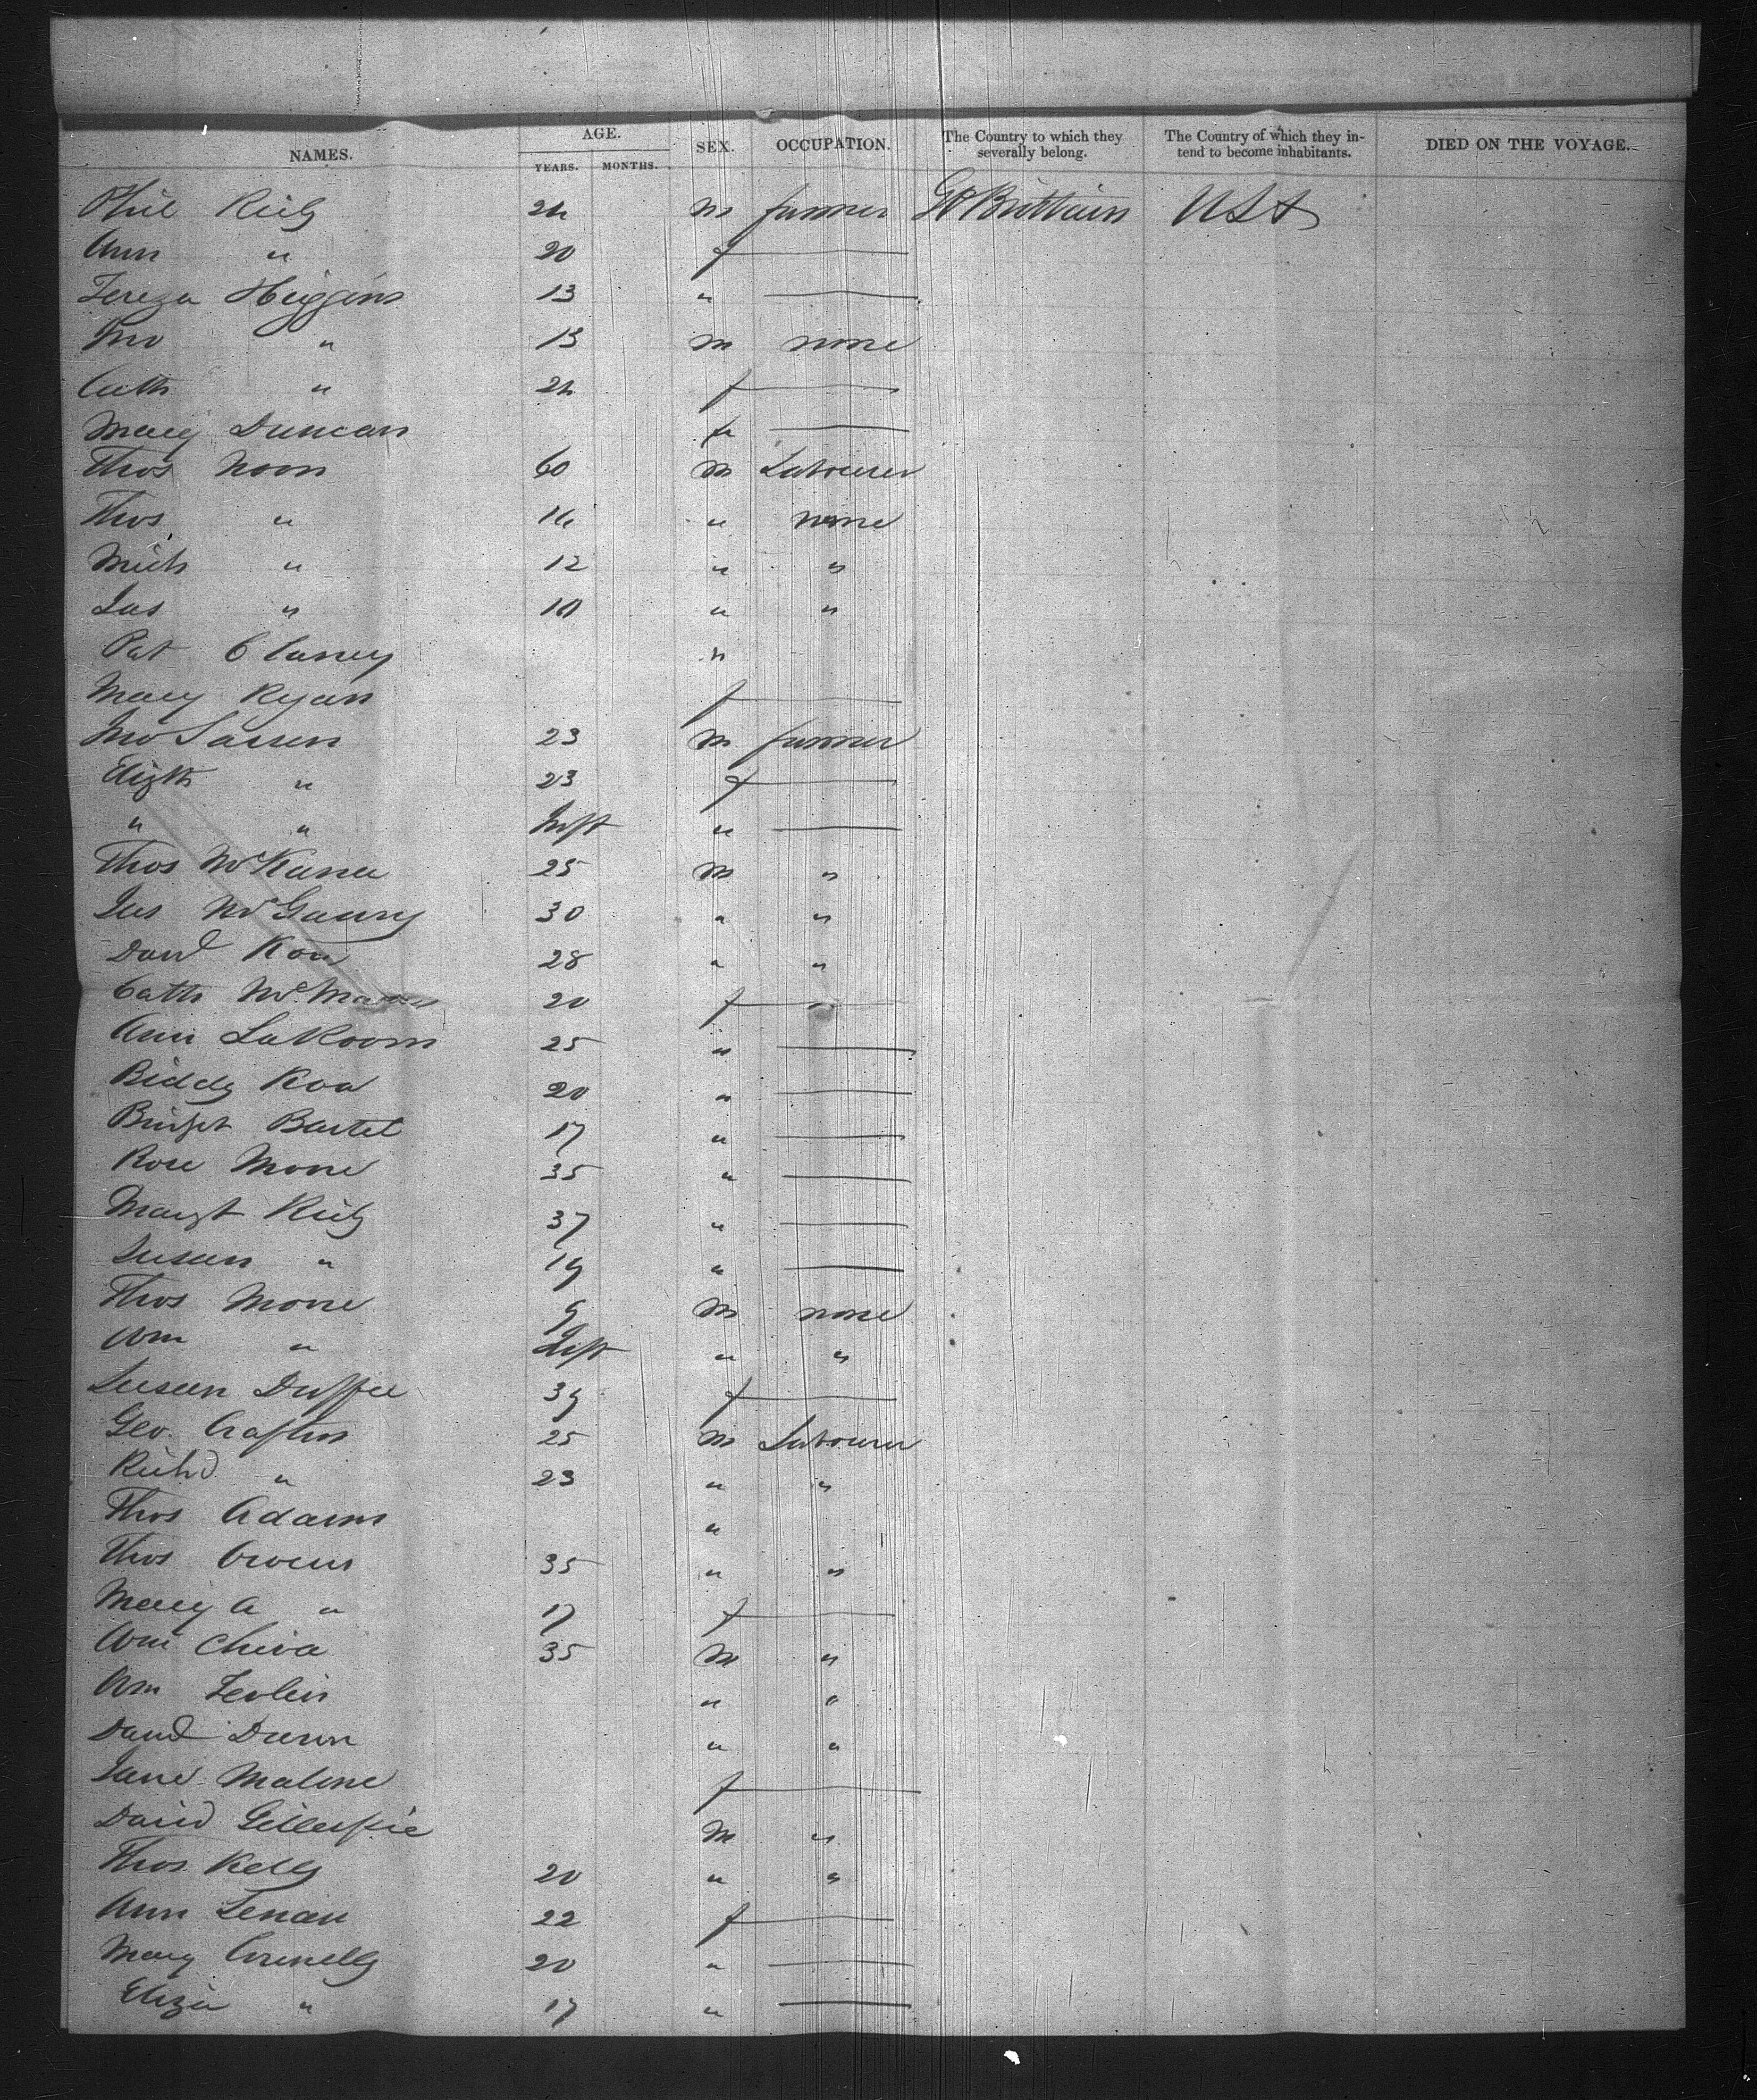 NAMES. AGE. YEARS. MONTHS. SEX. OCCUPATION. The Country to which they severally belong. The Country of which they intend to become inhabitants. DIED ON THE VOYAGE.
Phil Reily 24 m farmer Gt Brittain USA
Ann " 20 f —
Tereza Higgins 13 " —
Jno " 13 m none
Cath " 24 f —
Mary Duncan f —
Thos Noon 60 m Labourer
Thos " 16 " none
Mich " 12 " "
Jas " 10 " "
Pat Clancy "
Mary Ryan f —
Jno 23 m farmer
Elizth " 23 f —
" " Inft " —
Thos McKana 25 m "
Jas McGaury 30 " "
Danl 28 " "
Cath 20 f —
Ann LaRoom 25 " —
Biddy Koa 20 " —
Bridget Bartel 17 " —
Rose Mone 35 " —
Margt Reily 37 " —
Susan " 19 " —
Thos Mone 9 m none
Wm " Inft " "
Susan Duffee 39 f —
Geo. Crafton 25 m Labourer
Richd " 23 " "
Thos Adams "
Thos Owens 35 " "
Mary A " 17 f —
Wm Chiva 35 m "
Wm " "
David Dunn " "
Jane Malone f —
David Gillespie m "
Thos Kelly 20 " "
Ann Lenan 22 f —
Mary Connelly 20 " —
Eliza " 17 " —